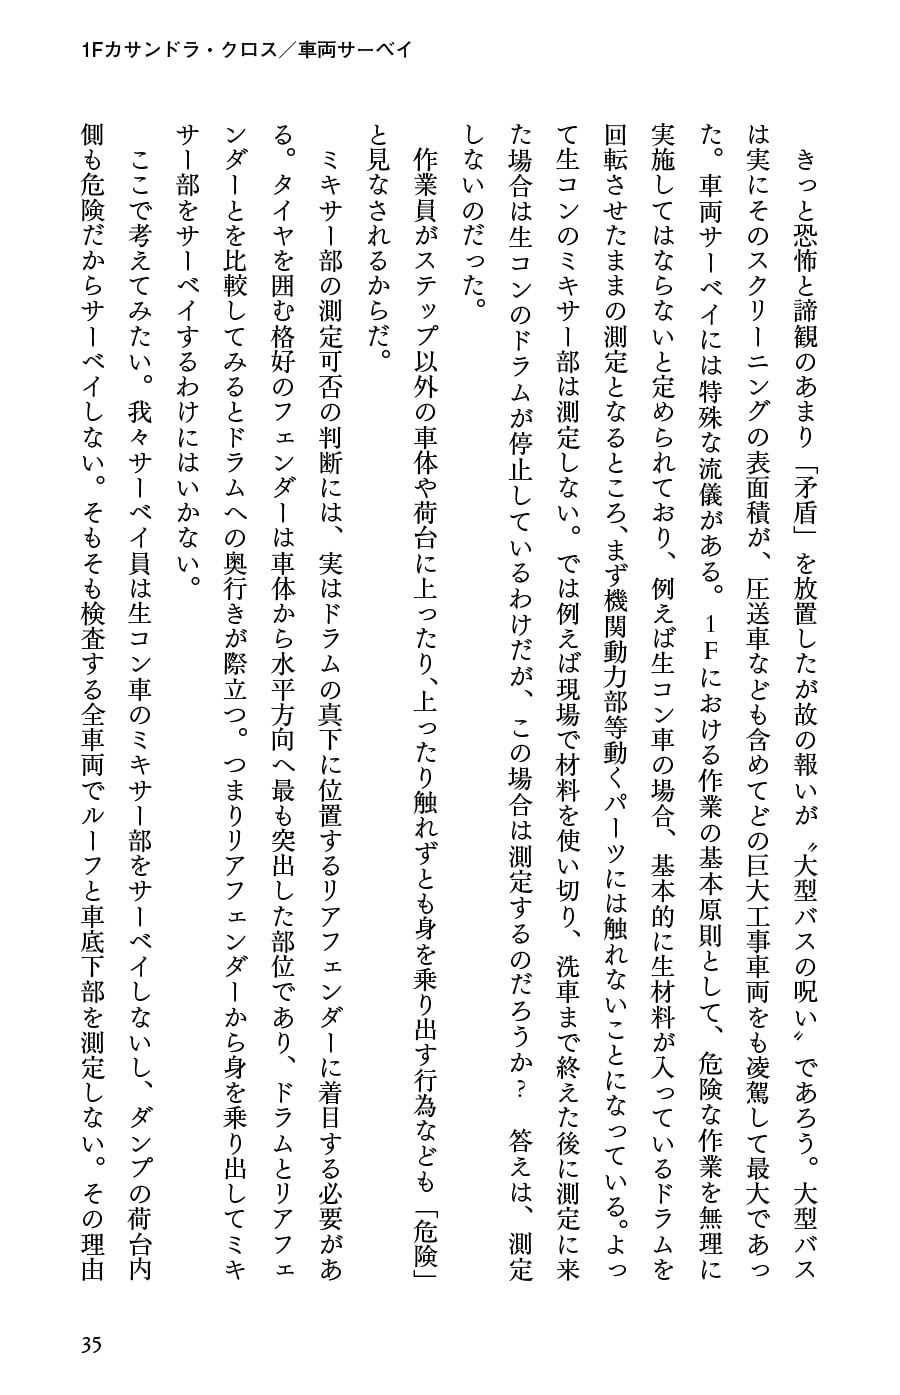 1Fカサンドラ・クロス／車両サーベイ
きっと恐怖と諦観のあまり「矛盾」を放置したが故の報いが〝大型バスの呪い〟であろう。大型バス
は実にそのスクリーニングの表面積が、圧送車なども含めてどの巨大工事車両をも凌駕して最大であっ
た。車両サーベイには特殊な流儀がある。1Fにおける作業の基本原則として、危険な作業を無理に
実施してはならないと定められており、例えば生コン車の場合、基本的に生材料が入っているドラムを
回転させたままの測定となるところ、まず機関動力部等動くパーツには触れないことになっている。よっ
て生コンのミキサー部は測定しない。では例えば現場で材料を使い切り、洗車まで終えた後に測定に来
た場合は生コンのドラムが停止しているわけだが、この場合は測定するのだろうか？　答えは、測定
しないのだった。
作業員がステップ以外の車体や荷台に上ったり、上ったり触れずとも身を乗り出す行為なども「危険」
と見なされるからだ。
ミキサー部の測定可否の判断には、実はドラムの真下に位置するリアフェンダーに着目する必要があ
る。タイヤを囲む格好のフェンダーは車体から水平方向へ最も突出した部位であり、ドラムとリアフェ
ンダーとを比較してみるとドラムへの奥行きが際立つ。つまりリアフェンダーから身を乗り出してミキ
サー部をサーベイするわけにはいかない。
ここで考えてみたい。我々サーベイ員は生コン車のミキサー部をサーベイしないし、ダンプの荷台内
側も危険だからサーベイしない。そもそも検査する全車両でルーフと車底下部を測定しない。その理由
35